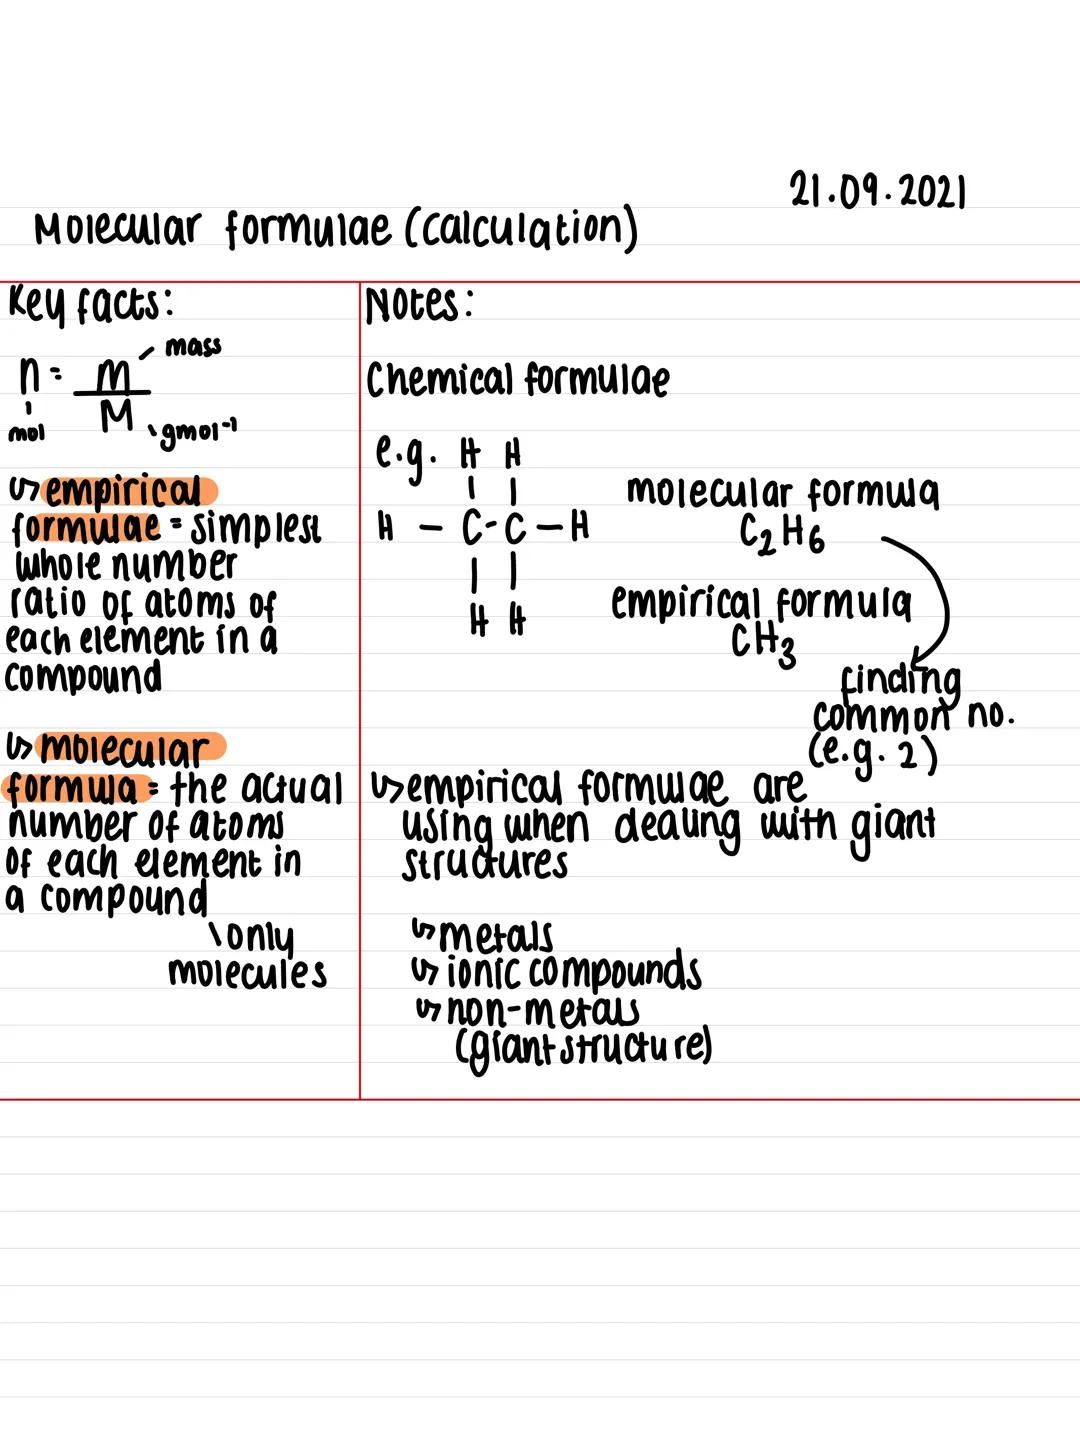 21.09.2021
Molecular formulae (calculation)
Key facts:
mass
n = m
M
mol
gmol⁻¹
↳ empirical
formulae = simplest
whole number
ratio of atoms of
each element in a
compound
↳ molecular
formula = the actual
number of atoms
of each element in
a compound
\ only
molecules
Notes:
Chemical formulae
e.g. H H
H – C - C – H
H H
molecular formula
C₂H₆
empirical formula
CH₃
finding
common no.
(e.g. 2)
↳ empirical formulae are
using when dealing with giant
structures
↳ metals
↳ ionic compounds
↳ non-metals
(giant structure)